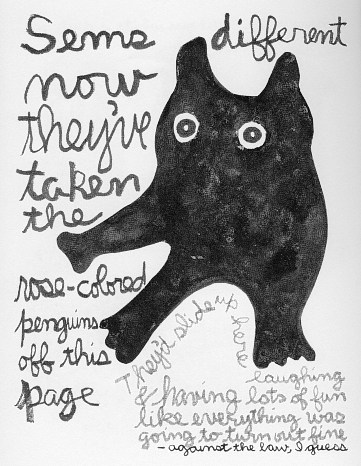 Sems different
now
they've
taken
the
rose-colored
penguins
off this
page
They'd slide up here
laughing
& having lots of fun
like everything was
going to turn out fine
- against the law, I guess